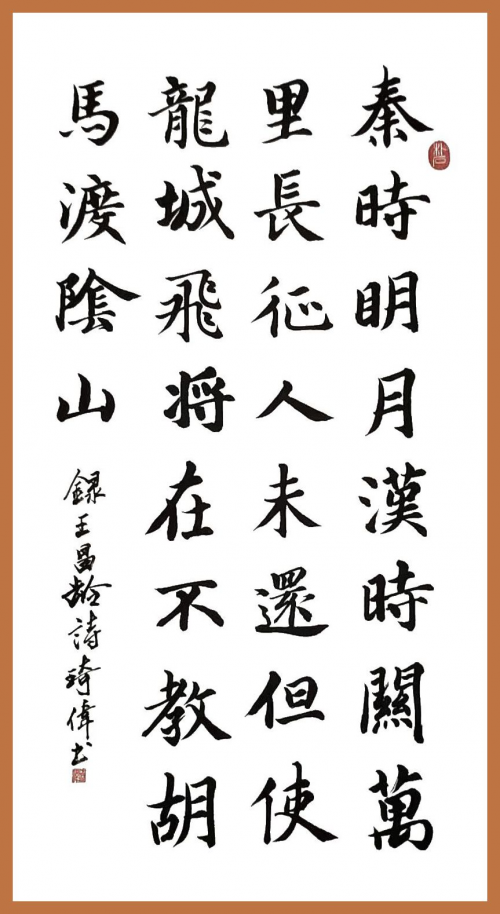 秦時明月漢時關萬
里長征人未還但使
龍城飛將在不教胡
馬渡陰山
錄王昌齡詩琦偉书